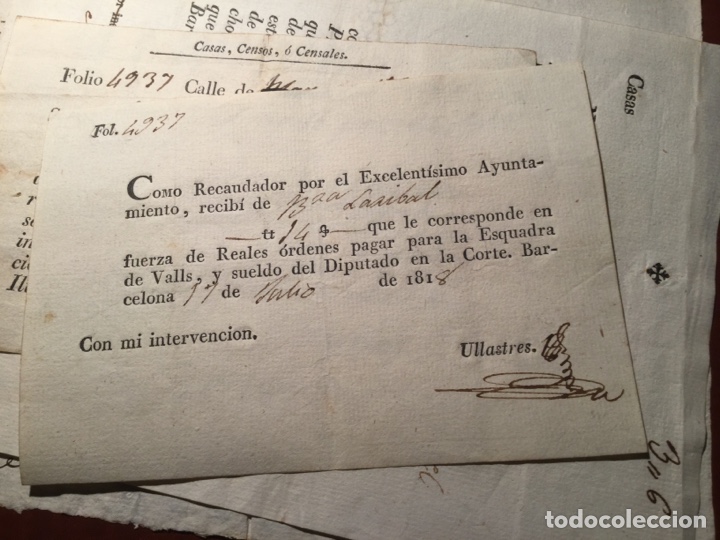 Casas, Censos, ó Censales.
Folio 4937 Calle de
Fol. 4937
Como Recaudador por el Excelentísimo Ayunta-
miento, recibí de Bta Laribal
tt 14 que le corresponde en
fuerza de Reales órdenes pagar para la Esquadra
de Valls, y sueldo del Diputado en la Corte. Bar-
celona 17 de Julio de 1818
Con mi intervencion.
Ullastres.
Casas
3 6
todocoleccion
todocoleccion.net